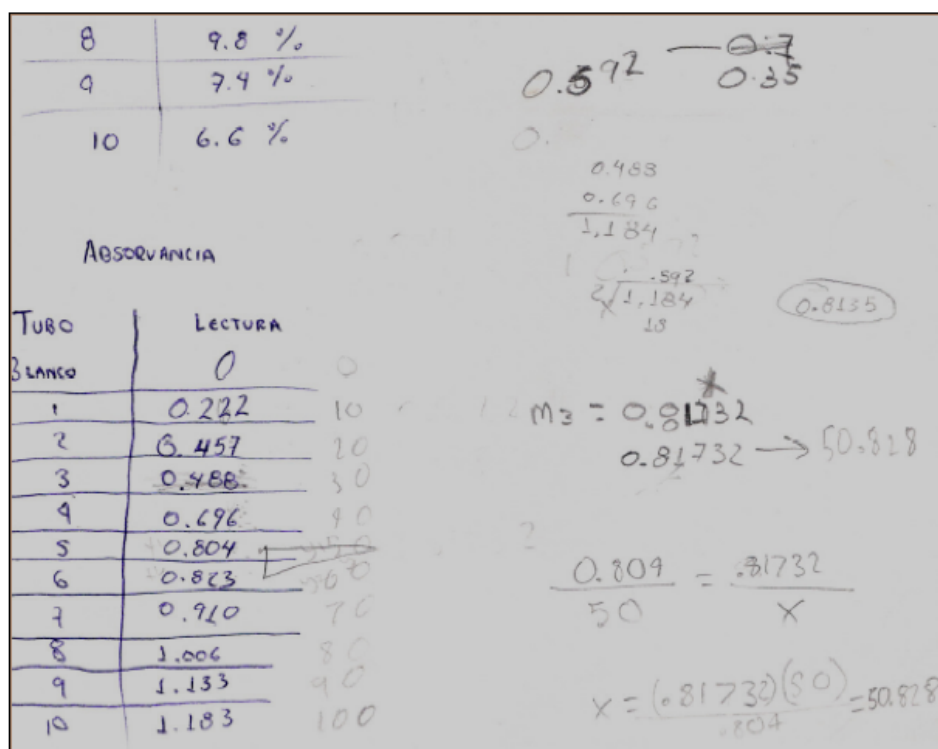 8 9.8 %
9 7.4 %
10 6.6 %
ABSORVANCIA
TUBO LECTURA
BLANCO 0 0
1 0.222 10
2 0.457 20
3 0.488 30
4 0.696 40
5 0.804
6 0.823
7 0.910 70
8 1.006 80
9 1.133 90
10 1.183 100
0.592 — 0.7
0.35
0.
0.488
0.696
1.184
.592
2 1.184
18
0.8135
m3 = 0.81732
0.81732 → 50.828
0.804 = .81732
50 X
X = (.81732)(50) = 50.828
.804